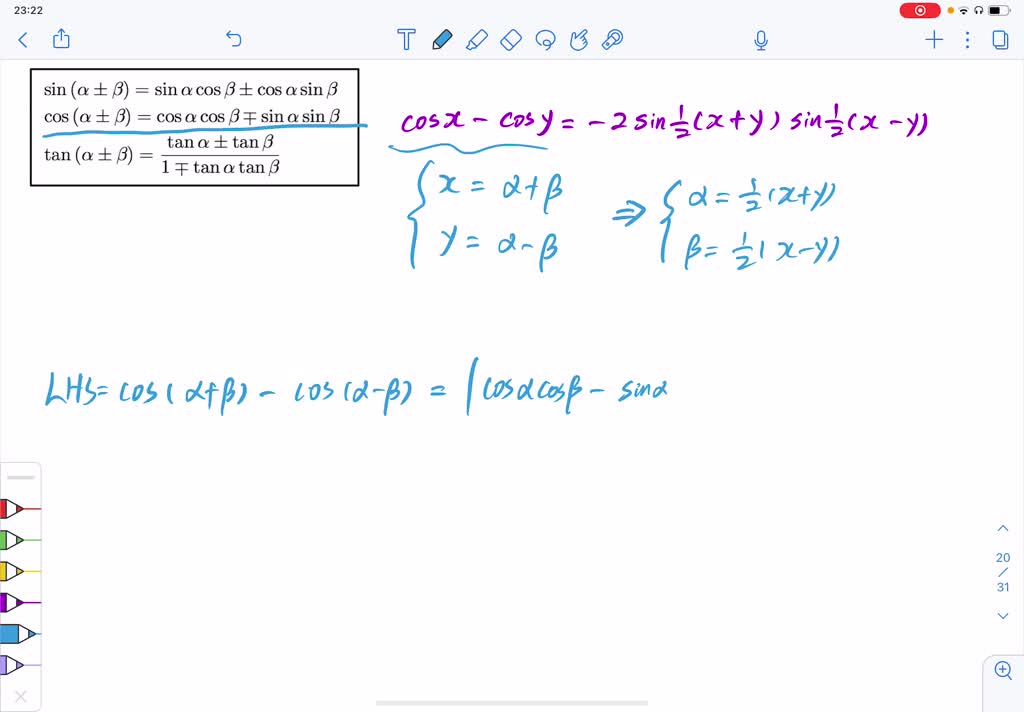 23:22
sin (α ± β) = sin α cos β ± cos α sin β
cos (α ± β) = cos α cos β ∓ sin α sin β
tan (α ± β) = (tan α ± tan β) / (1 ∓ tan α tan β)
cosx - cosy = -2 sin ½(x+y) sin ½(x-y)
{ x = α+β
y = α-β
⇒ { α = ½(x+y)
β = ½(x-y)
LHS = cos(α+β) - cos(α-β) = (cosαcosβ - sinα
20
/
31